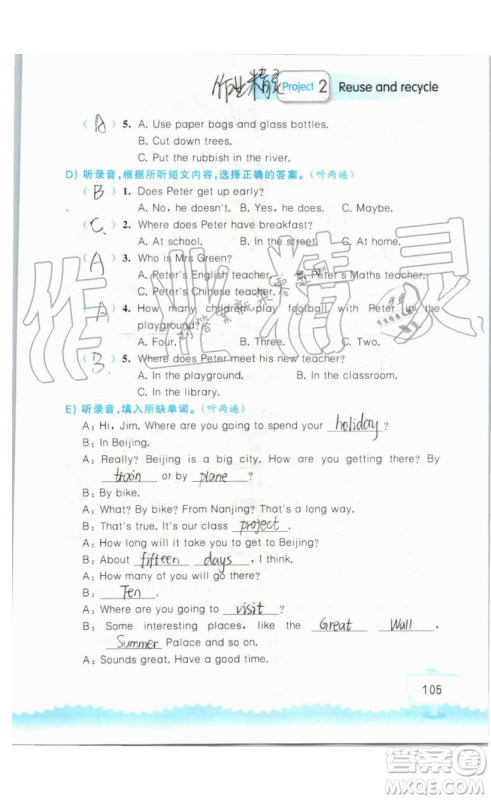 作业精灵 Project 2 Reuse and recycle
( A ) 5. A. Use paper bags and glass bottles.
B. Cut down trees.
C. Put the rubbish in the river.
D) 听录音,根据所听短文内容,选择正确的答案。(听两遍)
( B ) 1. Does Peter get up early?
A. No, he doesn't. B. Yes, he does. C. Maybe.
( C ) 2. Where does Peter have breakfast?
A. At school. B. In the street. C. At home.
( A ) 3. Who is Mrs Green?
A. Peter's English teacher. B. Peter's Maths teacher.
C. Peter's Chinese teacher.
( A ) 4. How many children play football with Peter in the
playground?
A. Four. B. Three. C. Two.
( B ) 5. Where does Peter meet his new teacher?
A. In the playground. B. In the classroom.
C. In the library.
E) 听录音,填入所缺单词。(听两遍)
A: Hi, Jim. Where are you going to spend your holiday?
B: In Beijing.
A: Really? Beijing is a big city. How are you getting there? By
train or by plane?
B: By bike.
A: What? By bike? From Nanjing? That's too far!
B: That's true. It's our class project.
A: How long will it take you to get to Beijing?
B: About fifteen days, I think.
A: How many of you will go there?
B: Ten.
A: Where are you going to visit?
B: Some interesting places, like the Great Wall,
Summer Palace and so on.
A: Sounds great. Have a good time.
105
作业精灵
答案圈
MXQE.COM